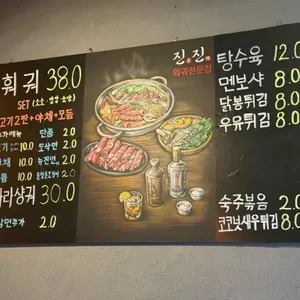 훠궈 38.0
SET (소호·병맥·음료)
고기2판+야채+모듬
단품 2.0
10.0 도삭면 2.0
10.0 뉴진면 2.0
10.0 2.0
마라샹궈 30.0
면추가 2.0
진진
훠궈전문점
탕수육 12.0
멘보샤 8.0
닭봉튀김 8.0
우유튀김 8.0
숙주볶음 2.0
코코넛새우튀김 8.0